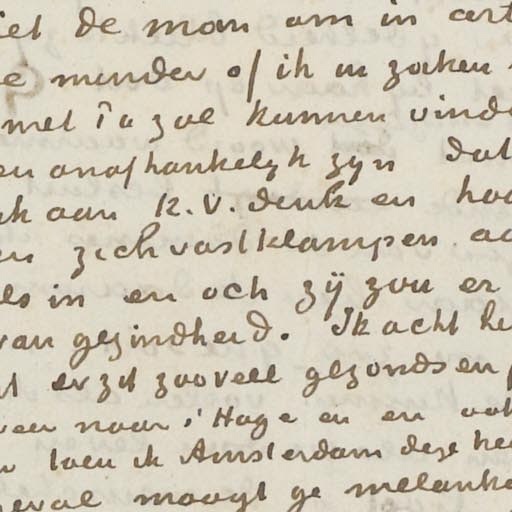 iet de man om in art
e minder of ik u zaken
met Ta zal kunnen vind
en onafhankelijk zyn dat
ak aan K.V. denk en hoo
en zich vastklampen aa
els in en och zij zou er
van gezindheid. Ik acht he
t er zit zooveel gezonds en
veer naar 's Hage en en ook
toen ik Amsterdam deze hee
geval moogt ge melanko